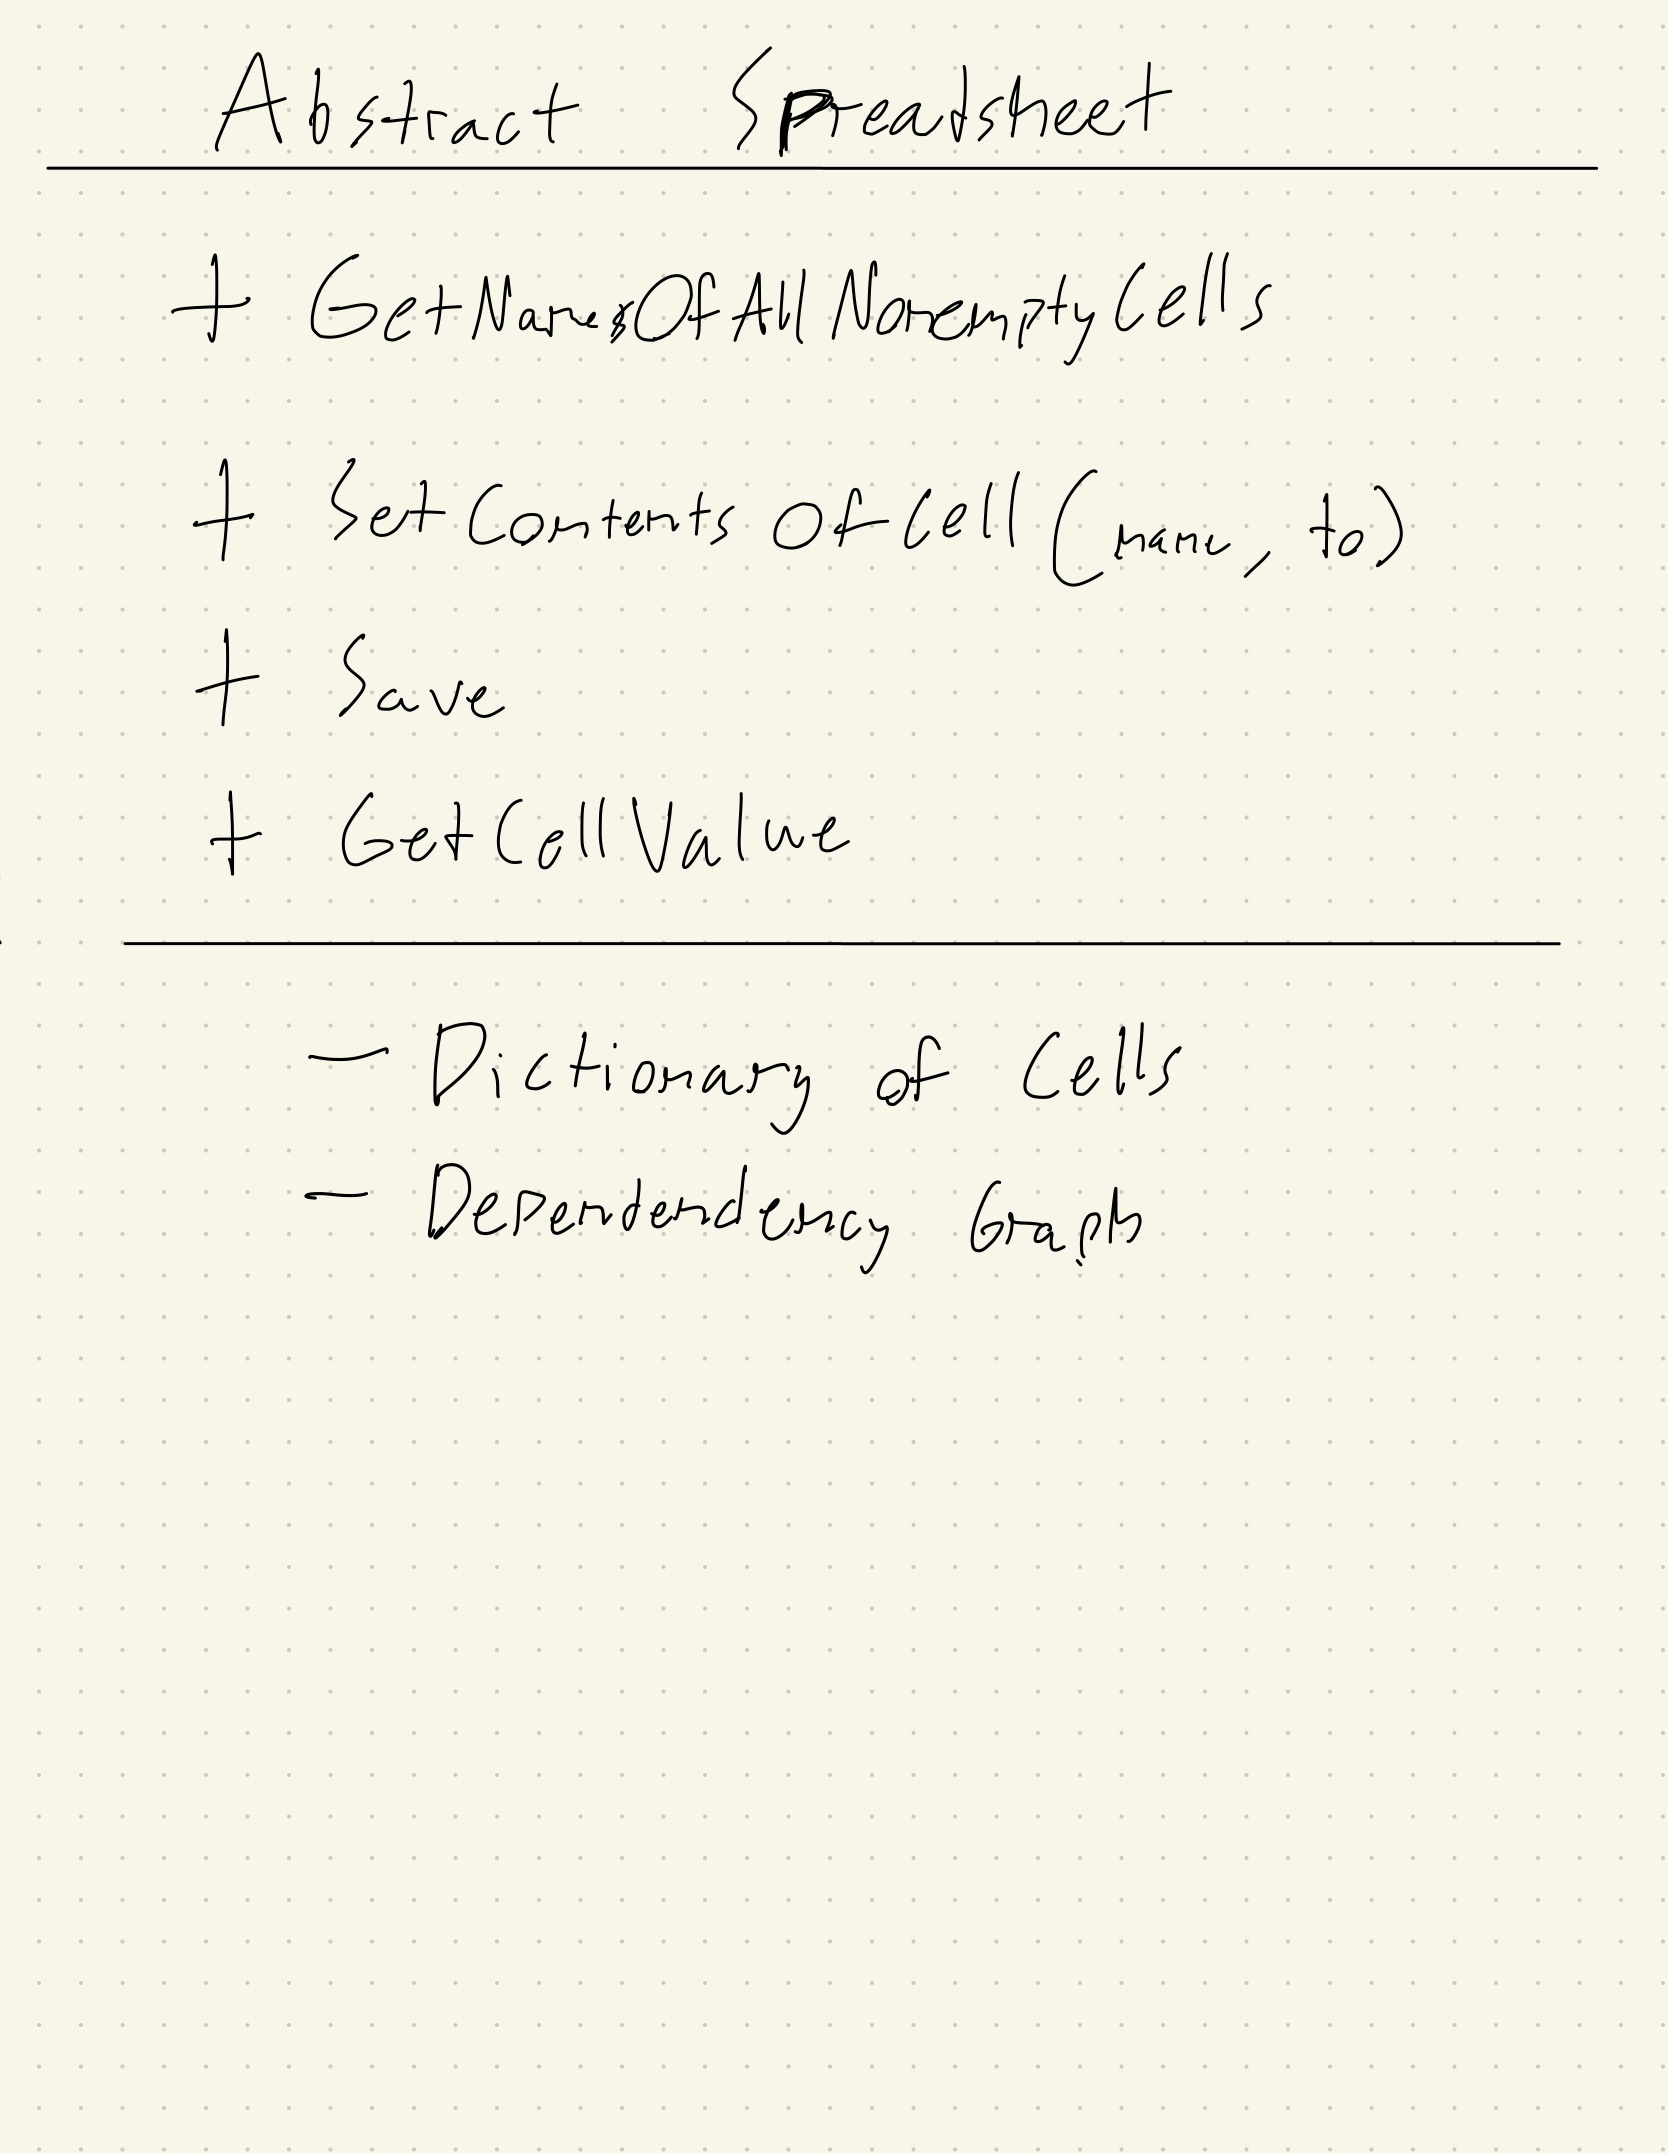 Abstract Spreadsheet
+ GetNamesOfAllNonemptyCells
+ SetContentsOfCell(name, to)
+ Save
+ GetCellValue
- Dictionary of Cells
- Dependendency Graph